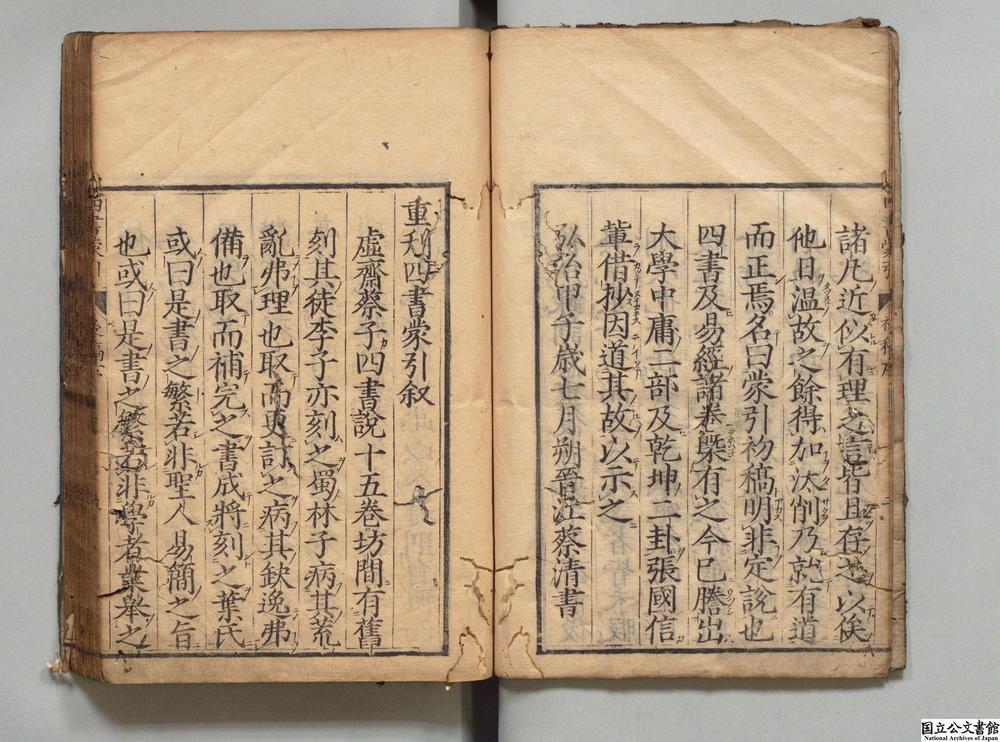 諸凡近似有理之言皆且存之以俟
他日温故之餘得加汰削乃就有道
而正焉名曰蒙引初稿明非定說也
四書及易經諸卷槩有之今已謄出
大學中庸二部及乾坤二卦張國信
輩借抄因道其故以示之
弘治甲子歳七月朔晉江蔡清書
重刻四書蒙引叙
虛齋蔡子四書說十五巻坊間有舊
刻其徒李子亦刻之蜀林子病其荒
亂弗理也取而更訂之病其缺逸弗
備也取而補完之書成將刻之葉氏
或曰是書之繁若非聖人易簡之旨
也或曰是書之繁若非學者業舉之
国立公文書館
National Archives of Japan